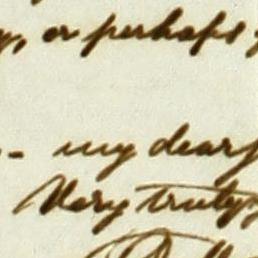 , or perhaps
- my dear
Very truly